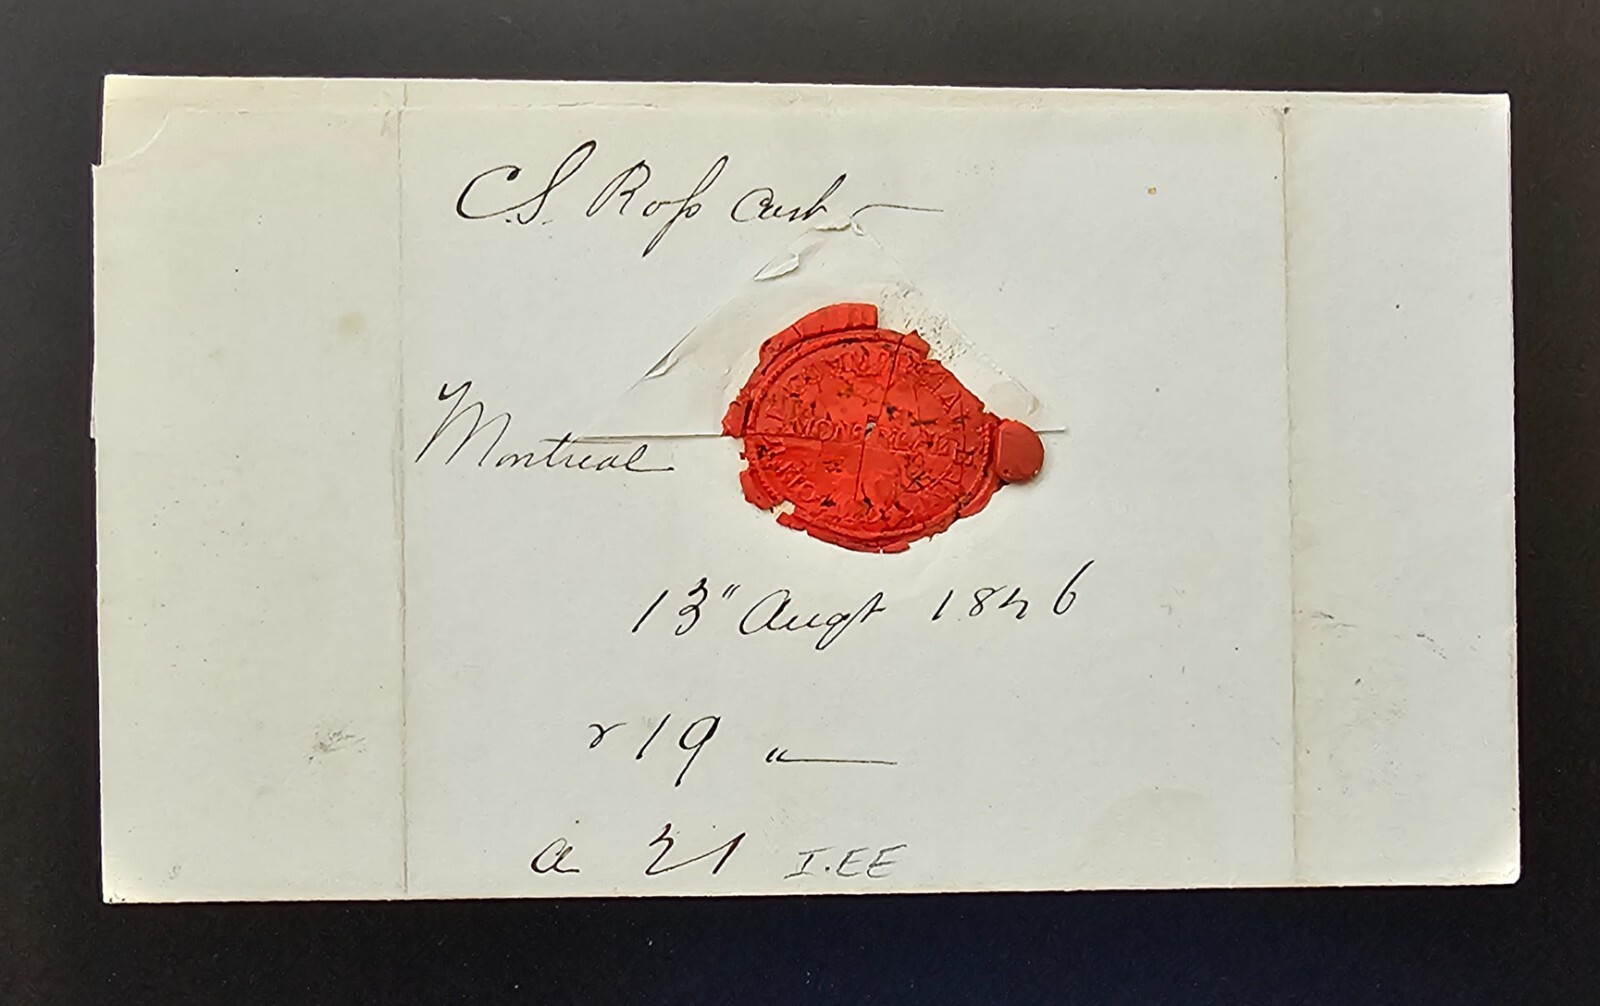 C.S. Ross Cash
MONTREAL
Montreal
13" Augt 1846
r 19 "
a 21 I.EE